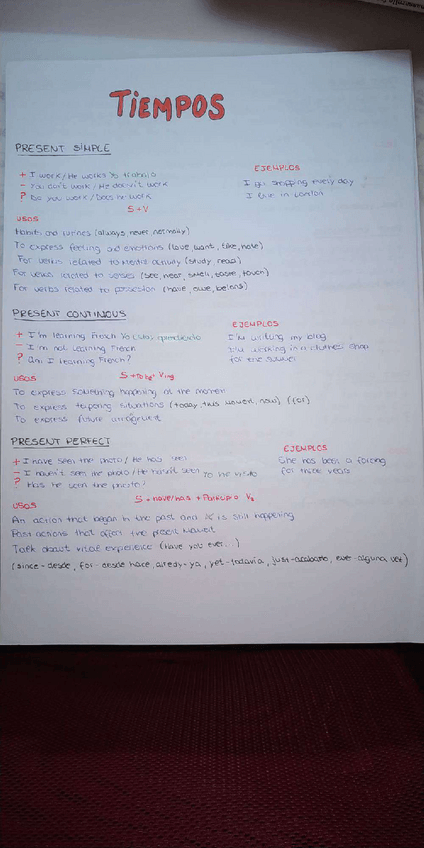 TIEMPOS
PRESENT SIMPLE
+ I work / He works Yo trabajo
- You don't work / He doesn't work
? Do you work / Does he work
S+V
EJEMPLOS
I go shopping every day
I live in London
USOS
Habits and rutines (always, never, normally)
To express feeling and emotions (love, want, like, hate)
For verbs related to activity (study, read)
For verbs related to senses (see, hear, smell, taste, touch)
For verbs related to possesion (have, owe, belong)
PRESENT CONTINOUS
+ I'm learning French Yo estoy aprendiendo
- I'm not learning French
? Am I learning French?
S + to be + Ving
EJEMPLOS
I'm writing my blog
I'm working in a clothes shop
for the summer
USOS
To express something happening at the moment
To express situations (today, this now) (for)
To express future
PRESENT PERFECT
+ I have seen the photo / He has seen
- I haven't seen the photo / He hasn't seen
? Has he seen the photo?
S + have/has + Participio V3
EJEMPLOS
She has been a
for three years
USOS
An action that began in the past and is still happening
Past actions that the present
Talk about experience (Have you ever...)
(since-desde, for-desde hace, alredy-ya, yet-todavía, just-acabado, ever-alguna vez)